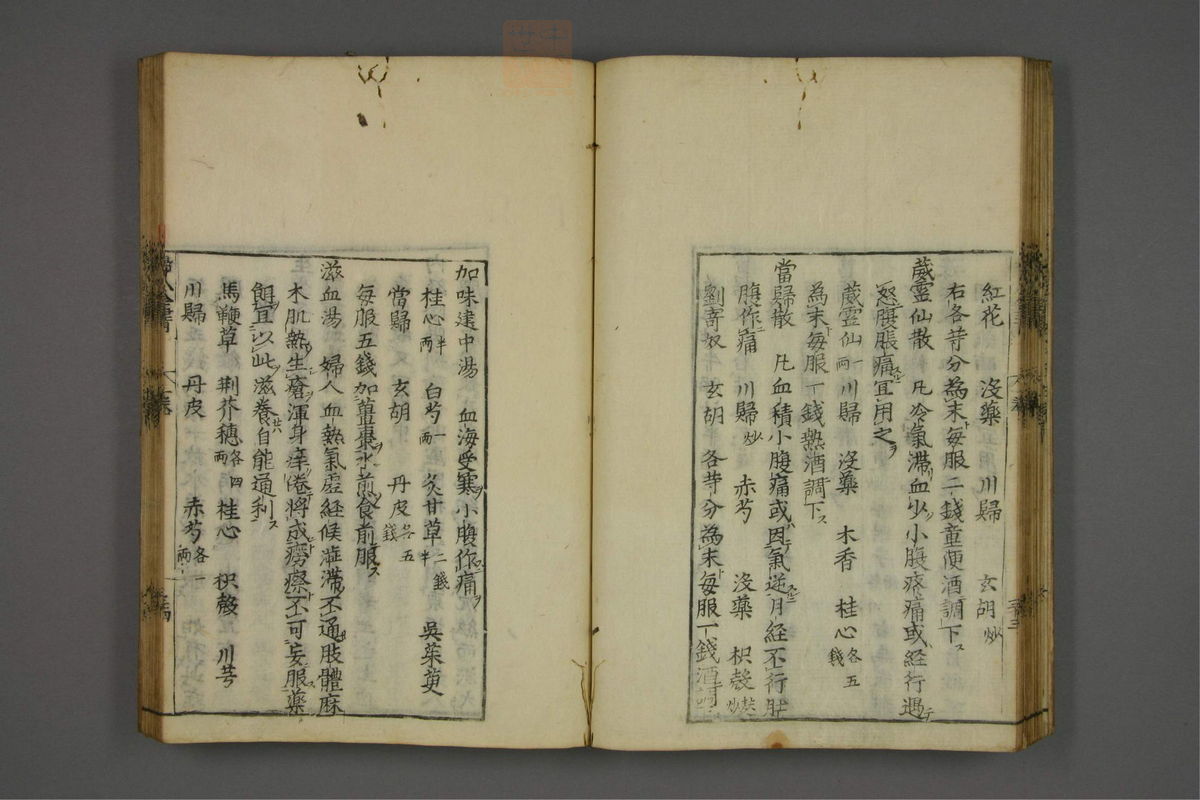 紅花　沒藥　川歸　玄胡炒
右各等分為末毎服二錢童便酒調下ス
葳靈仙散　凡冷氣滯血少小腹疼痛或經行遇
怒腹脹痛宜用之
葳靈仙一兩　川歸　沒藥　木香　桂心各五錢
為末毎服一錢熱酒調下ス
當歸散　凡血積小腹痛或因氣逆月經不行肚
腹作痛　川歸炒　赤芍　沒藥　枳殼炒
劉寄奴　玄胡　各等分為末毎服一錢酒調
加味建中湯　血海受寒小腹作痛
桂心半兩　白芍一兩　炙甘草二錢半　吳茱萸
當歸　玄胡　丹皮各五錢
毎服五錢加薑棗水煎食前服ス
滋血湯　婦人血熱氣虛經候澁滯不通肢體麻
木肌熱生瘡渾身痒倦將成癆瘵不可妄服藥
餌宜以此滋養自能通利ス
馬鞭草　荆芥穗各四兩　桂心　枳殼　川芎
川歸　丹皮　赤芍各一兩